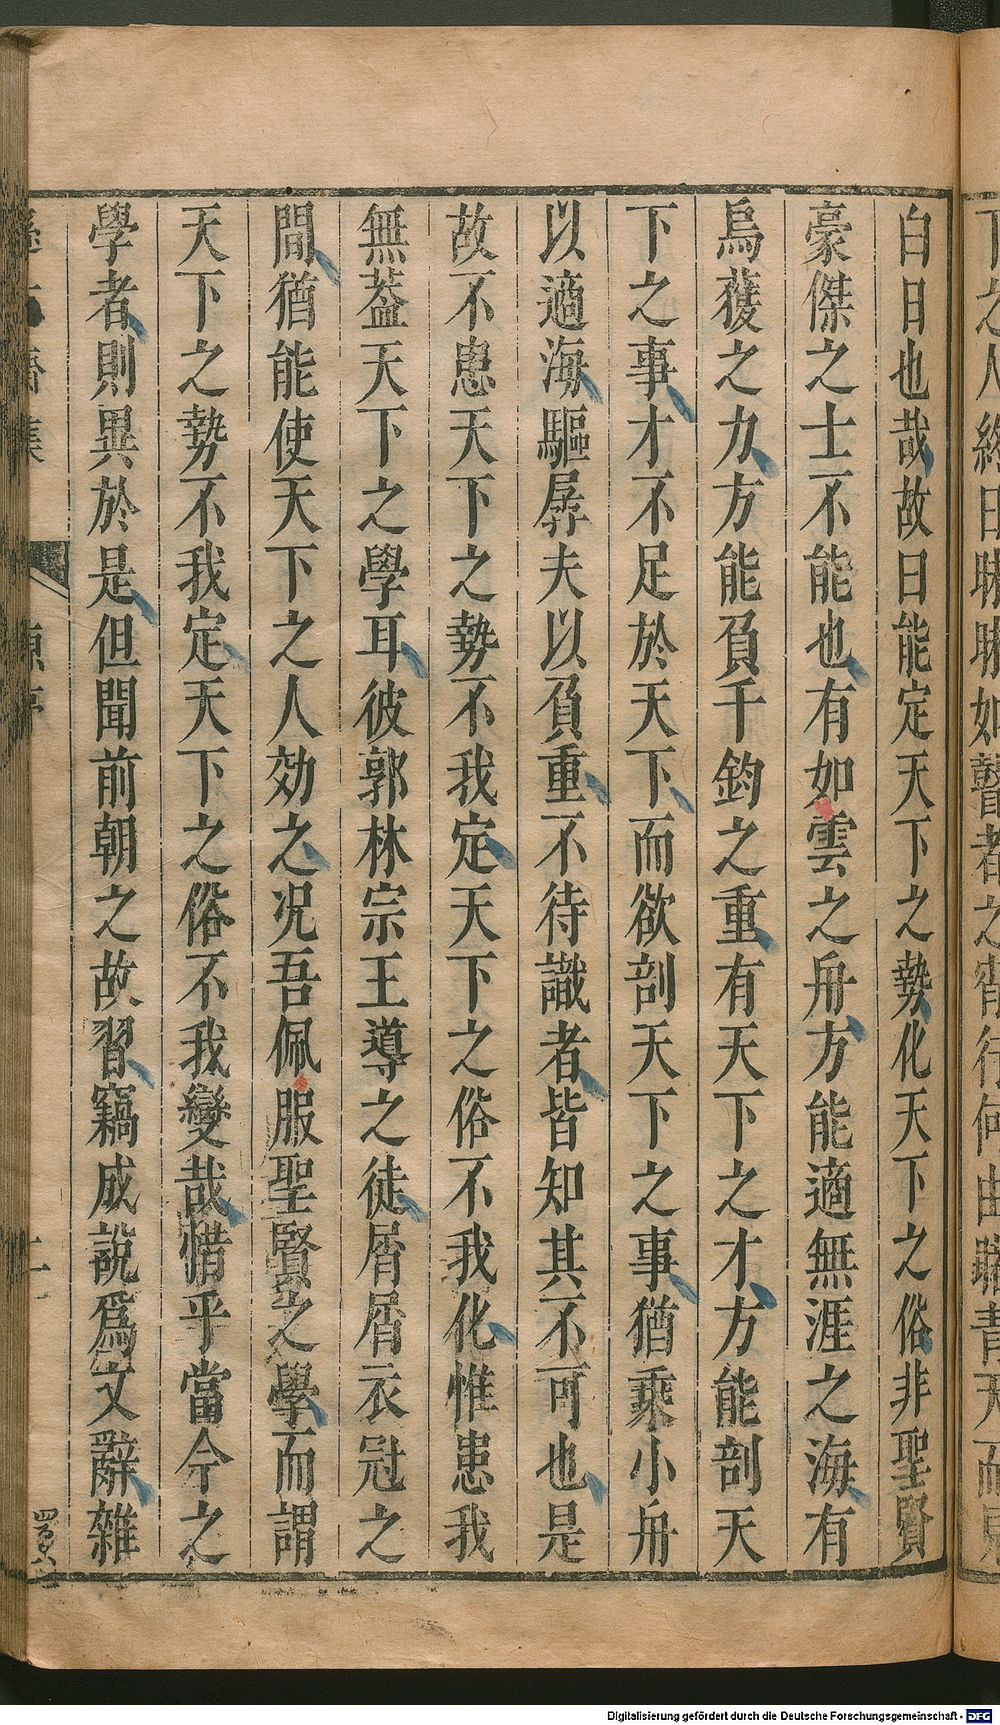 白日也哉故曰能定天下之勢化天下之俗非聖賢
豪傑之士不能也有如雲之舟方能適無涯之海有
烏獲之力方能負千鈞之重有天下之才方能剖天
下之事才不足於天下而欲剖天下之事猶乘小舟
以適海驅孱夫以負重不待識者皆知其不可也是
故不患天下之勢不我定天下之俗不我化惟患我
無葢天下之學耳彼郭林宗王導之徒屑屑衣冠之
間猶能使天下之人効之况吾佩服聖賢之學而謂
天下之勢不我定天下之俗不我變哉惜乎當今之
學者則異於是但聞前朝之故習竊成說爲文辭雜
Digitalisierung gefördert durch die Deutsche Forschungsgemeinschaft - DFG